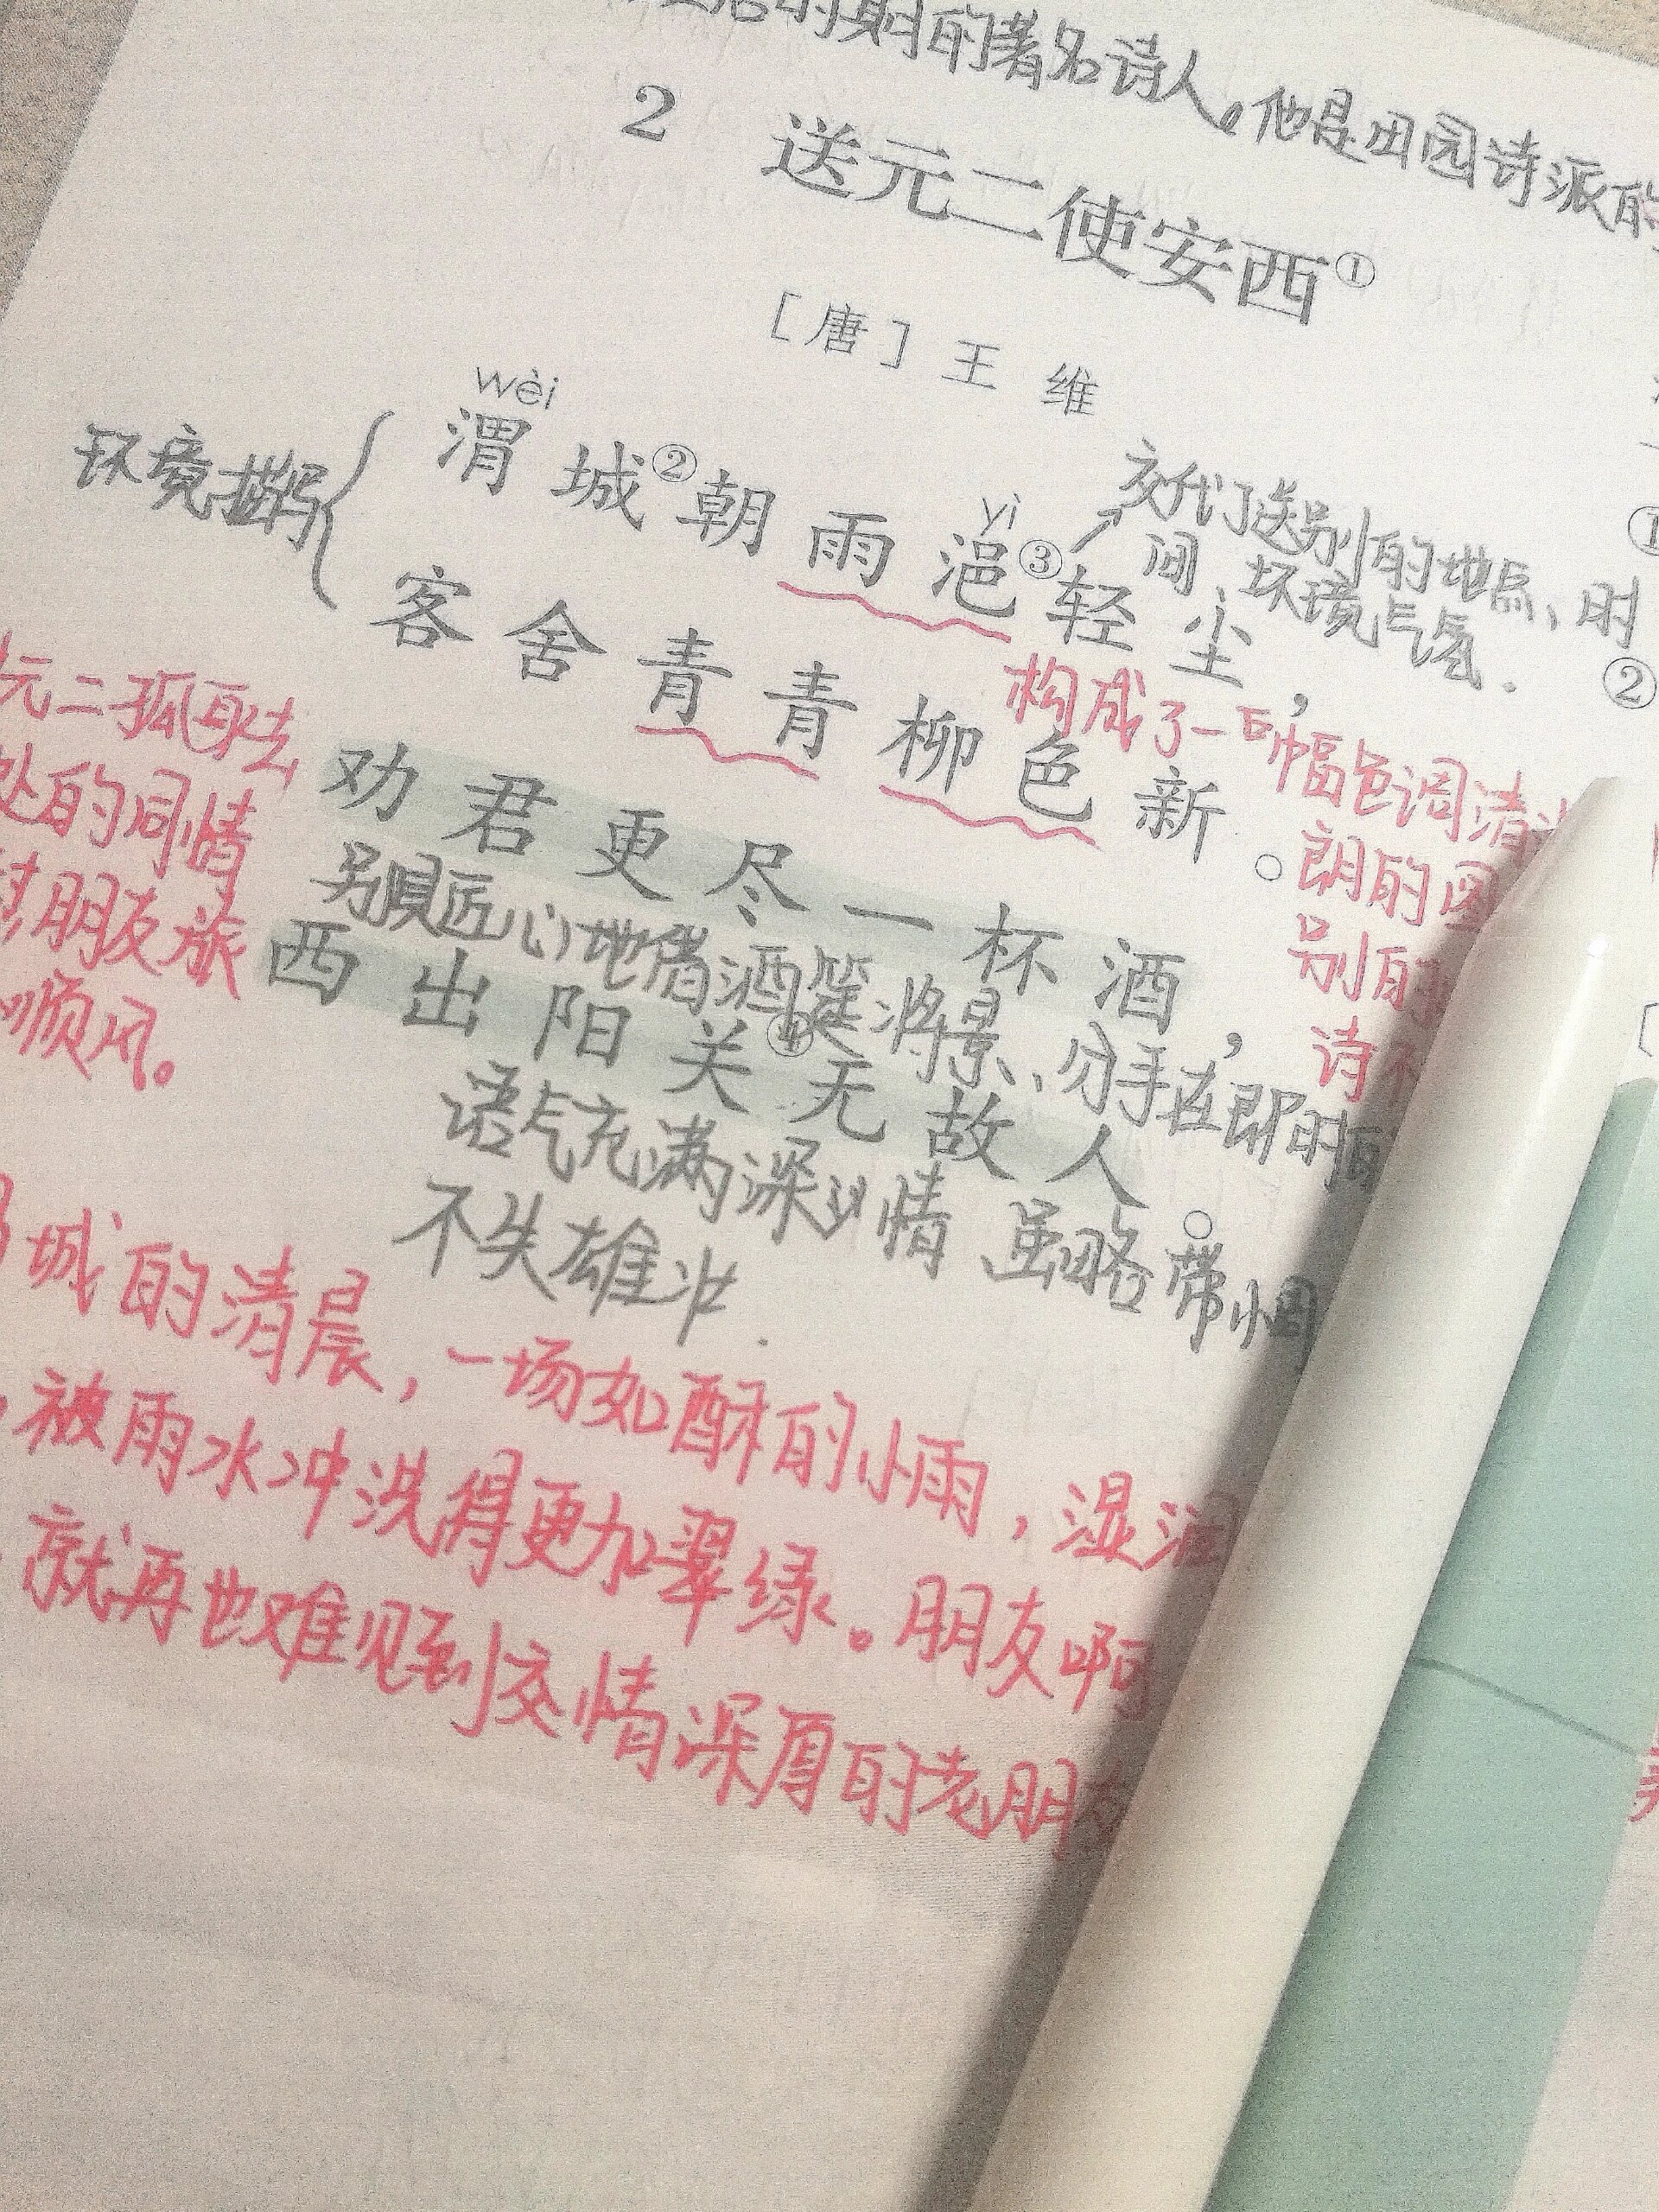 时期的著名诗人。他是田园诗派的
2 送元二使安西①
［唐］王 维
wèi
环境描写
渭城②朝雨浥③轻尘，
yì
交代了送别的地点、时
间、环境气氛.
客舍青青柳色新。
构成了一幅色调清
朗的图
别的
诗不
元二孤身去
处的同情
朋友旅
顺风。
劝君更尽一杯酒，
别具匠心地借酒筵将景、分手在即时
西出阳关④无故人。
语气充满深沉情、虽略带惆
不失雄壮.
①
②
城的清晨，一场如酥的小雨，湿润
被雨水冲洗得更加翠绿。朋友啊
就再也难见到交情深厚的老朋友